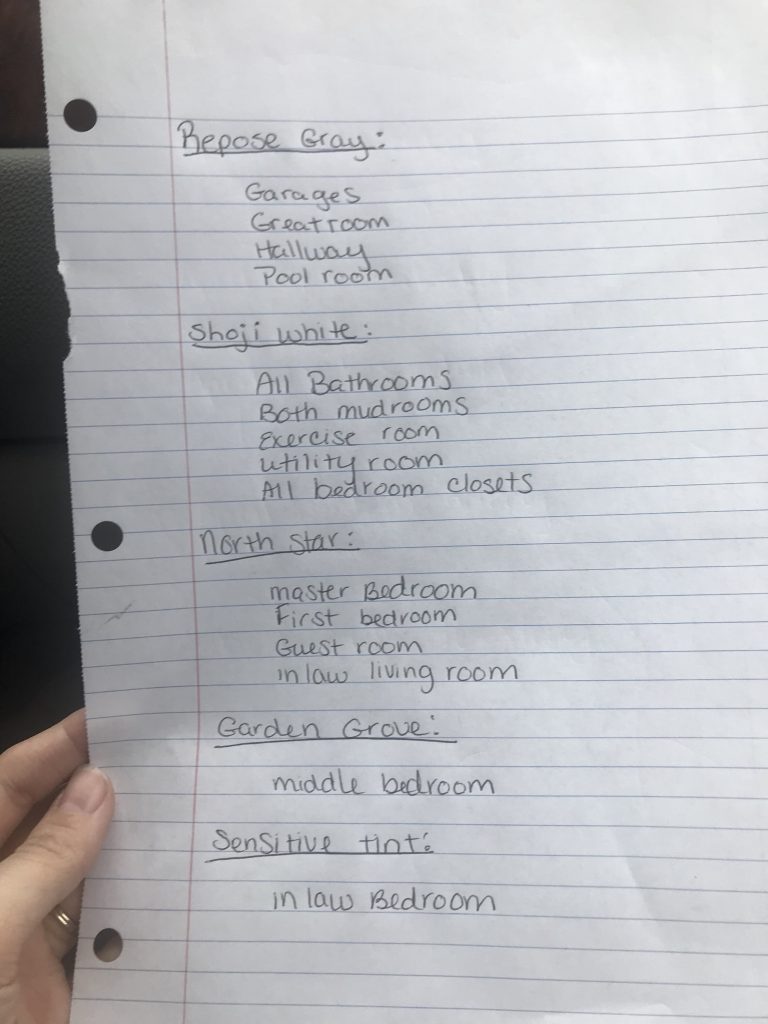 Repose Gray:
Garages
Greatroom
Hallway
Pool room
Shoji white:
All Bathrooms
Both mudrooms
Exercise room
utility room
All bedroom closets
North Star:
master Bedroom
First bedroom
Guest room
in law living room
Garden Grove:
middle bedroom
Sensitive tint:
in law Bedroom